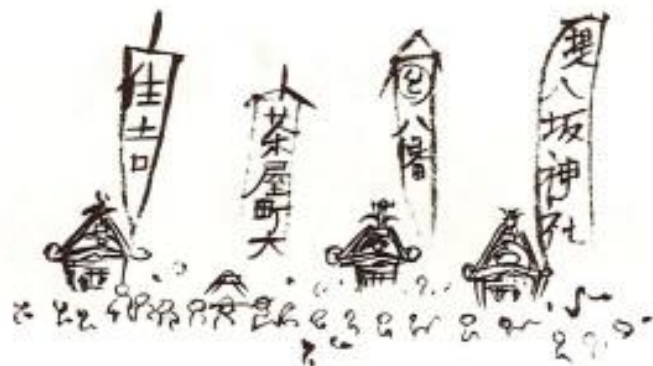 住吉
茶屋町大
八幡
堤八坂神社